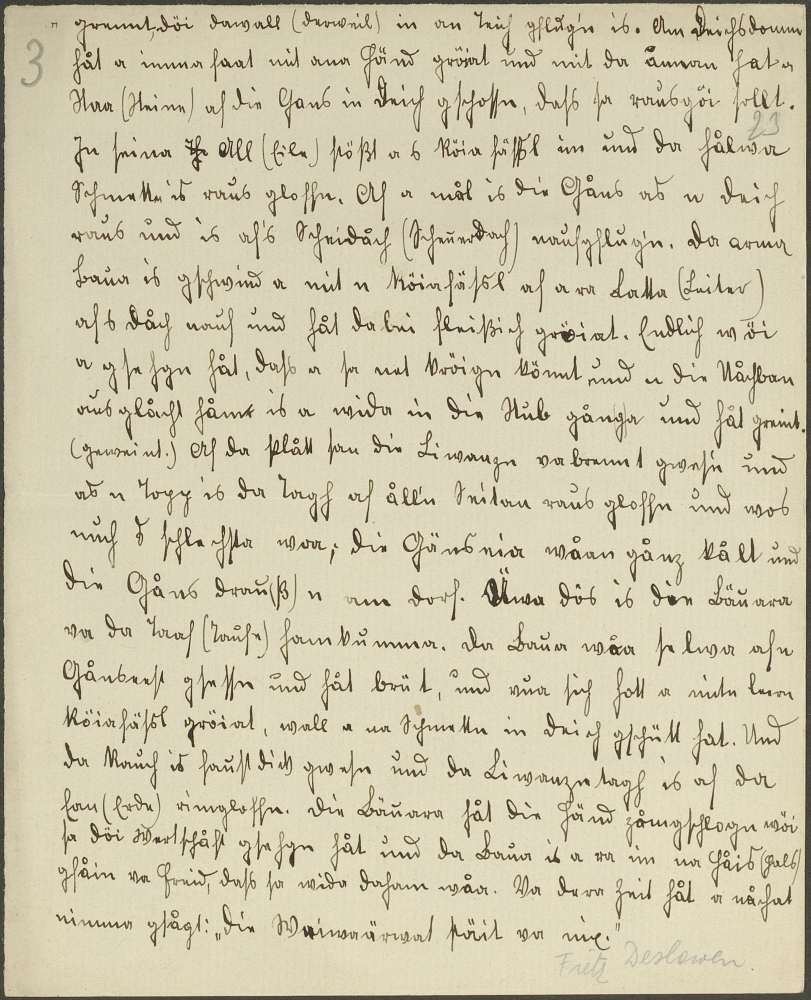 grennt, döi dawall (derweil) in an Teich gflugn is. Am Deichsdomm
3
håt a imma faat mit ana Händ gröiat und mit da ånnan hat a
Staa (Steine) af die Gans in Deich gschossn, dass sa rausgöi sollt.
23
In seina All (Eile) stößt a s Röiafässl üm und da hålwa
Schmettn is raus gloffn. Af a mål is die Gåns as n Deich
raus und is af's Scheidåch (Scheuerdach) naufgflugn. Da arma
Baua is gschwind a mit n Röiafässl af a ra Latta (Leiter)
afs Dåch nauf und håt dabei fleißich gröiat. Endlich wöi
a gsehgn håt, dass a sa net kröign könnt und n die Nåchban
ausglåcht håmt is a wida in die Stub gånga und håt greint.
(geweint.) Af da Plått san die Liwanzn vabrennt gwesn und
as n Topp is da Tagh af ålln Seitan raus gloffn und wos
nuch s schlechsta woa; die Gänseia wåan gånz kålt und
die Gåns drau(ß)n am Dorf. Üwa dös is die Bäuara
va da Taaf (Taufe) hamkumma. Da Baua wåa selwa afn
Gånsnest gsessn und håt brüt, und vua sich hott a mitn leern
Röiafässl gröiat, wall a na Schmettn in Deich gschütt hat. Und
da Rauch is faustdick gwesn und da Liwanzntagh is af da
Ean (Erde) rimgloffn. Die Bäuara håt die Händ zåmgschlogn wöi
sa döi Wertschåft gsehgn håt und da Baua is a ra im na Håis (Hals)
gfåin va Freid, dass sa wida daham wåa. Va dera Zeit håt a nåchat
nimma gsågt: „Die Waiwaärwat stäit va nix."
Fritz Deslawen